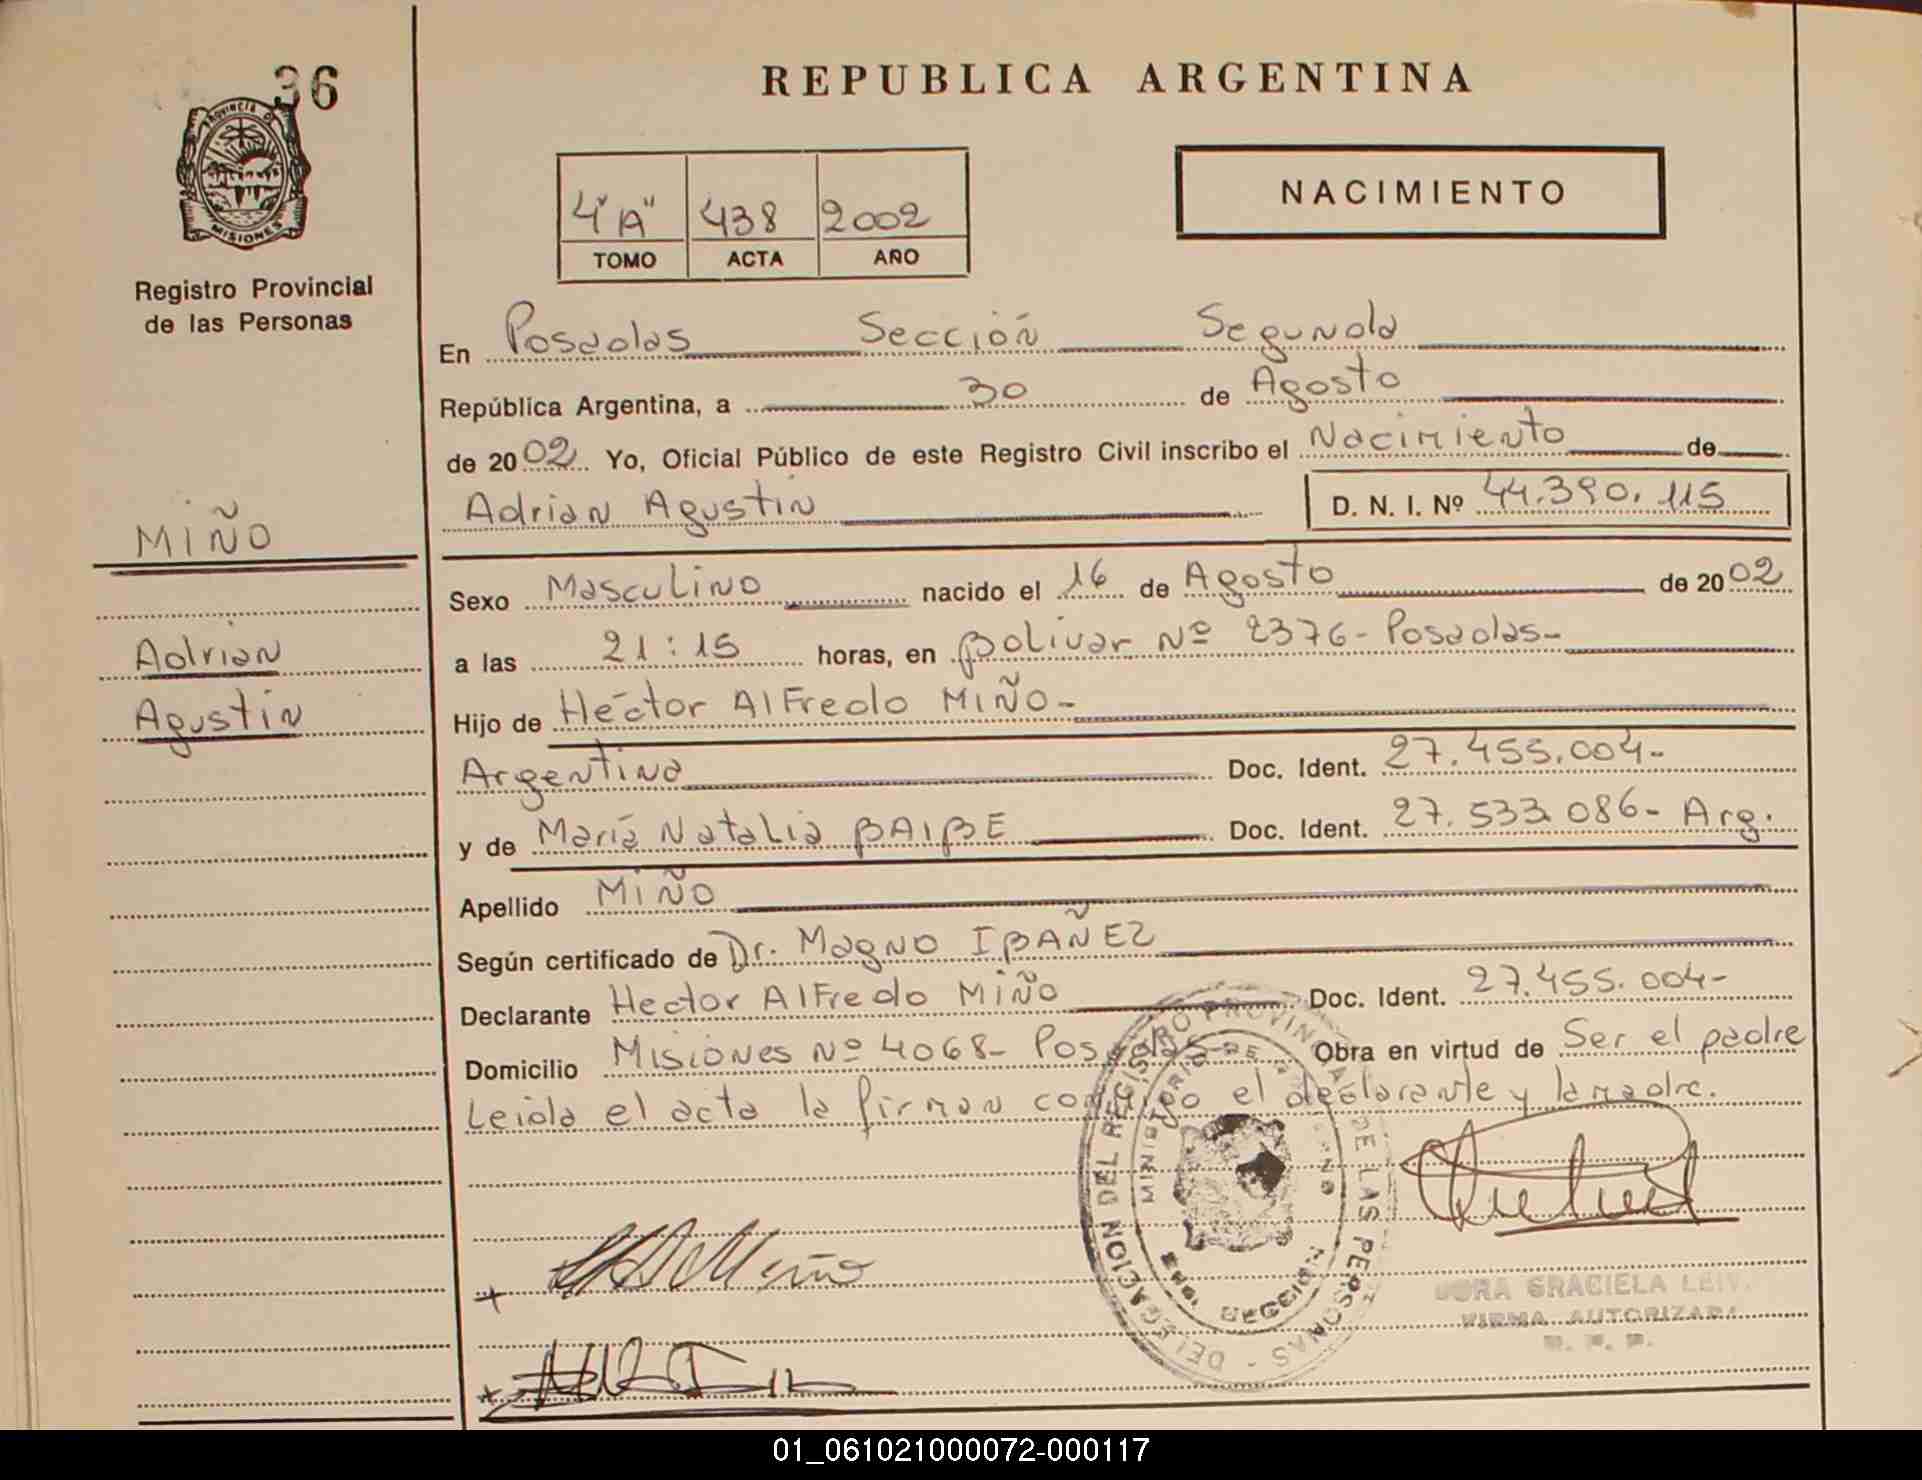 36
PROVINCIA DE
MISIONES
Registro Provincial
de las Personas
REPUBLICA ARGENTINA
4"A" 438 2002
TOMO ACTA AÑO
NACIMIENTO
En Posadas Sección Segunda
República Argentina, a 30 de Agosto
de 2002 Yo, Oficial Público de este Registro Civil inscribo el Nacimiento de
Adrian Agustin D. N. I. Nº 44.390.115
MIÑO
Adrian
Agustin
Sexo Masculino nacido el 16 de Agosto de 2002
a las 21:15 horas, en Bolivar Nº 2376- Posadas-
Hijo de Héctor Alfredo MIÑO-
Argentina Doc. Ident. 27.455.004-
y de María Natalia BAIBE Doc. Ident. 27.533.086- Arg.
Apellido MIÑO
Según certificado de Dr. Magno IBAÑEZ
Declarante Hector Alfredo MIÑO Doc. Ident. 27.455.004-
Domicilio Misiones Nº 4068- Posadas- Obra en virtud de Ser el padre
Leida el acta la firman conmigo el declarante y la madre.
DELEGACION DEL REGISTRO PROVINCIAL DE LAS PERSONAS
MINISTERIO DE
SECCION
Miño
GRACIELA
FIRMA AUTORIZADA
01_061021000072-000117